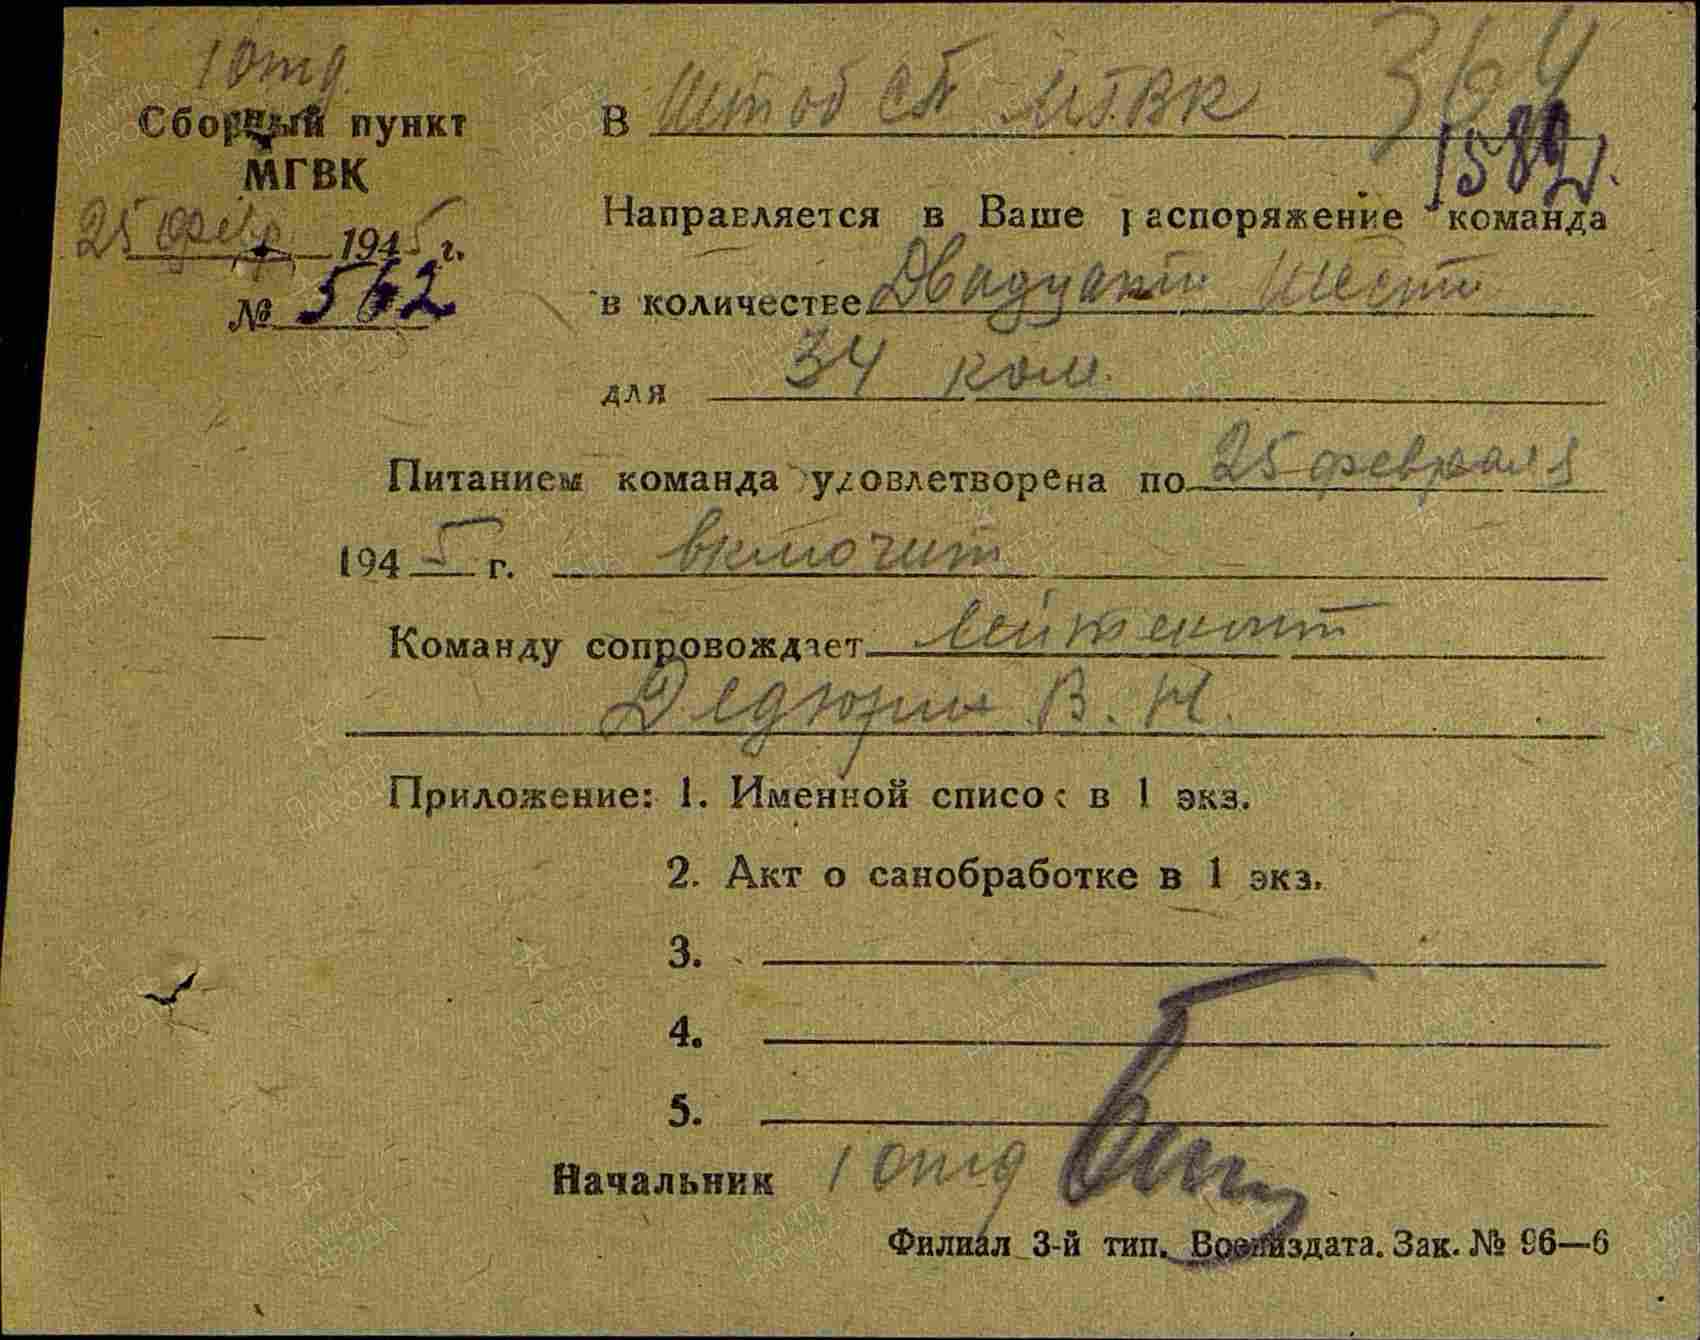 1 Отд.
Сборный пункт
МГВК
25 февр. 1945 г.
№ 562
364
В Штаб СП МГВК
1582
Направляется в Ваше распоряжение команда
в количестве Двадцати шести
для 34 ком.
Питанием команда удовлетворена по 25 февраля
1945 г. включит
Команду сопровождает лейтенант
Дедюрин В. И.
Приложение: 1. Именной список в 1 экз.
2. Акт о санобработке в 1 экз.
3.
4.
5.
Начальник 1 отд
Филиал 3-й тип. Воениздата. Зак. № 96—6
ПАМЯТЬ НАРОДА